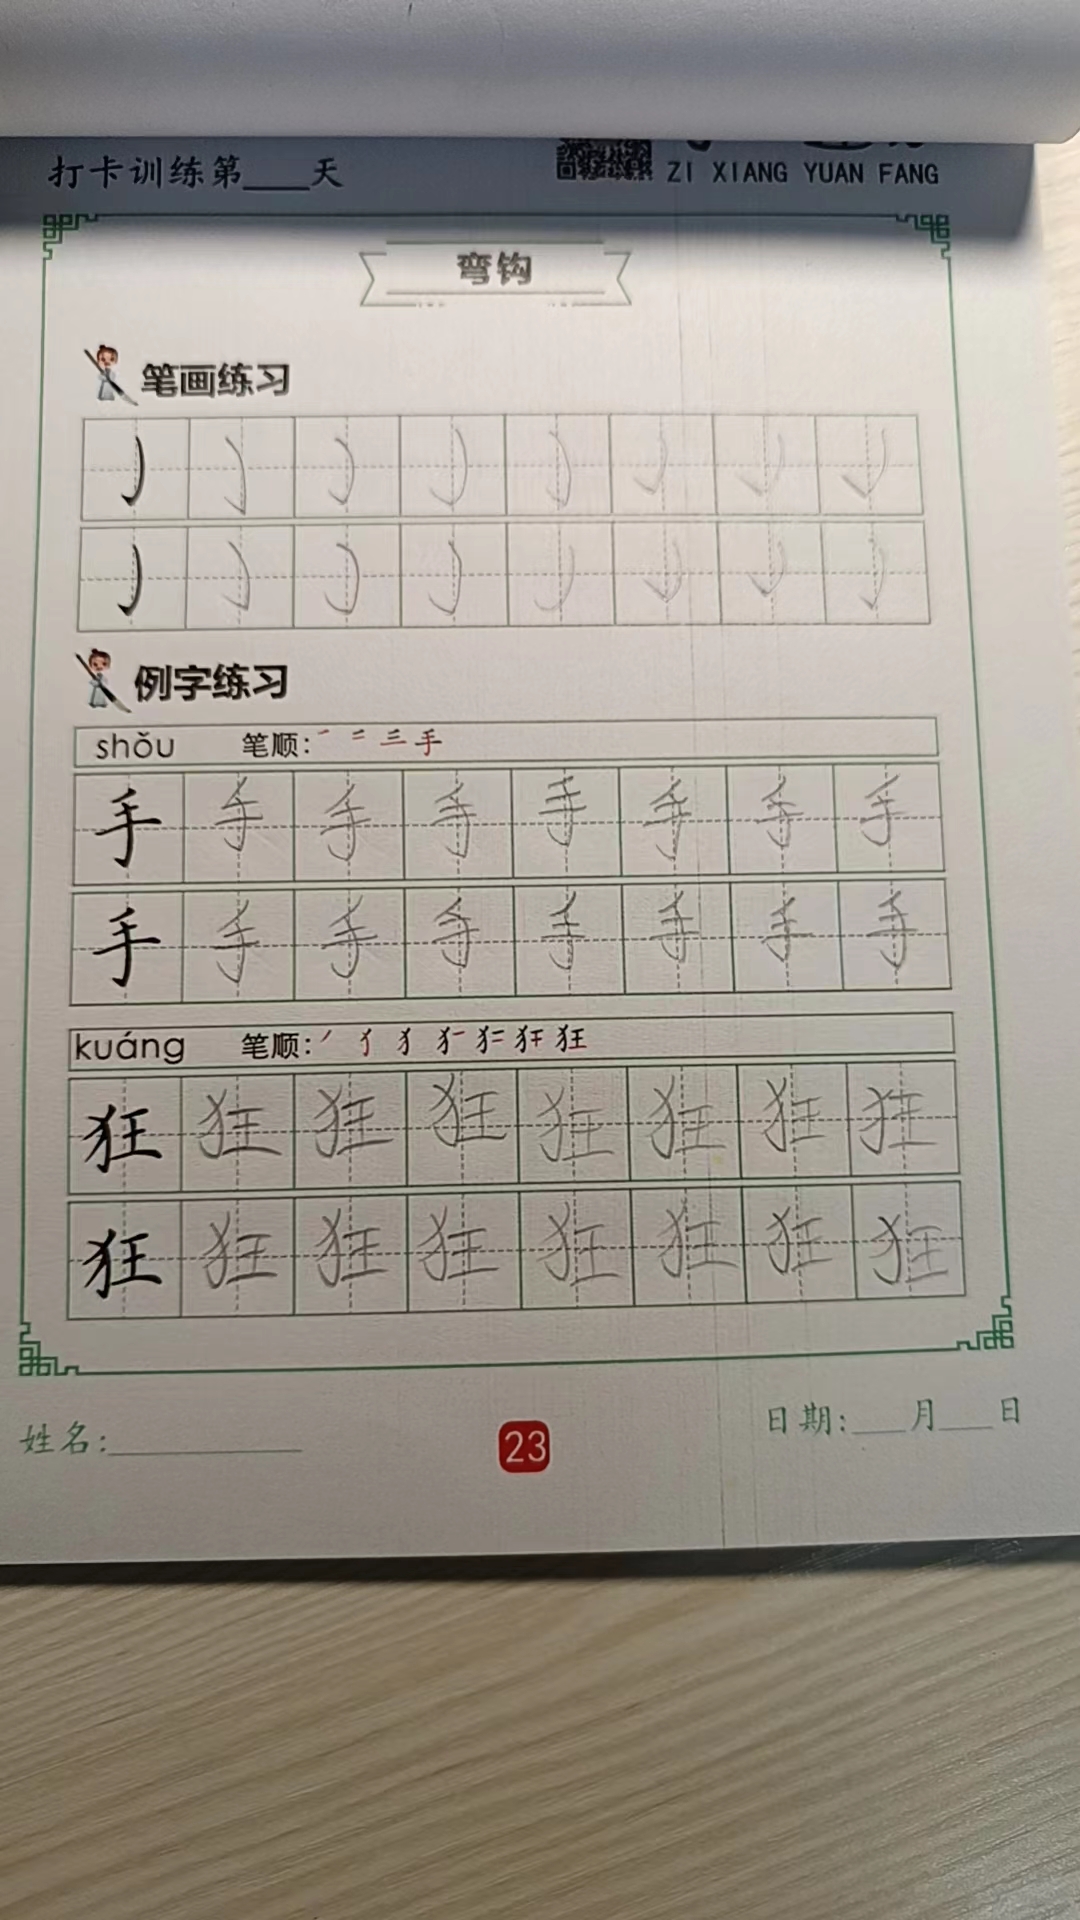 打卡训练第___天
ZI XIANG YUAN FANG
弯钩
笔画练习
例字练习
shǒu 笔顺: 一 二 三 手
手 手 手 手 手 手 手 手
手 手 手 手 手 手 手 手
kuáng 笔顺: 狂
狂 狂 狂 狂 狂 狂 狂 狂
狂 狂 狂 狂 狂 狂 狂 狂
姓名:
23
日期:___月___日